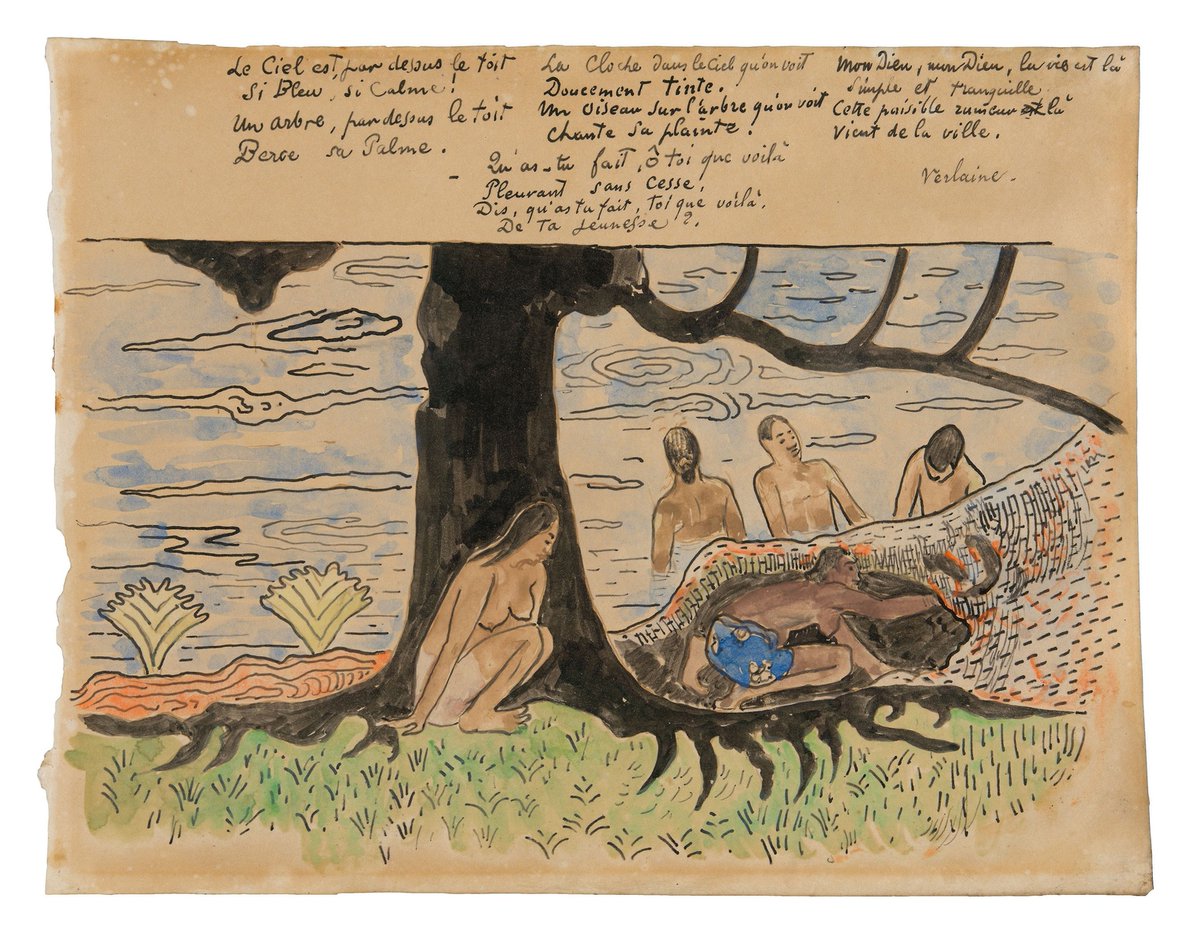 Le Ciel est, par dessus le toit
Si Bleu, si Calme!
Un arbre, par dessus le toit
Berce sa Palme.
La Cloche dans le Ciel qu'on voit
Doucement tinte.
Un Oiseau sur l'arbre qu'on voit
Chante sa plainte!
Mon Dieu, mon Dieu, la vie est là
Simple et tranquille
Cette paisible rumeur là
Vient de la ville.
- Qu'as-tu fait, Ô toi que voilà
Pleurant sans Cesse,
Dis, qu'as tu fait, toi que voilà,
De Ta Jeunesse?.
Verlaine.